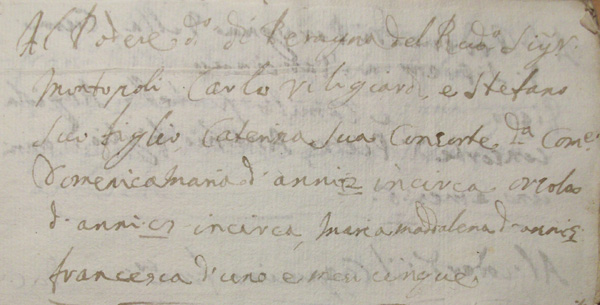 Al Podere d.o di Peragna del R.do Sig.r
Montopoli Carlo Viligiardi, e Stefano
suo figlio Caterina sua Consorte d.a Com.e
Domenica Maria d'anni 12 incirca Orsola
d'anni incirca, Maria Maddalena d'anni
francesca d'uno e mesi cinque.